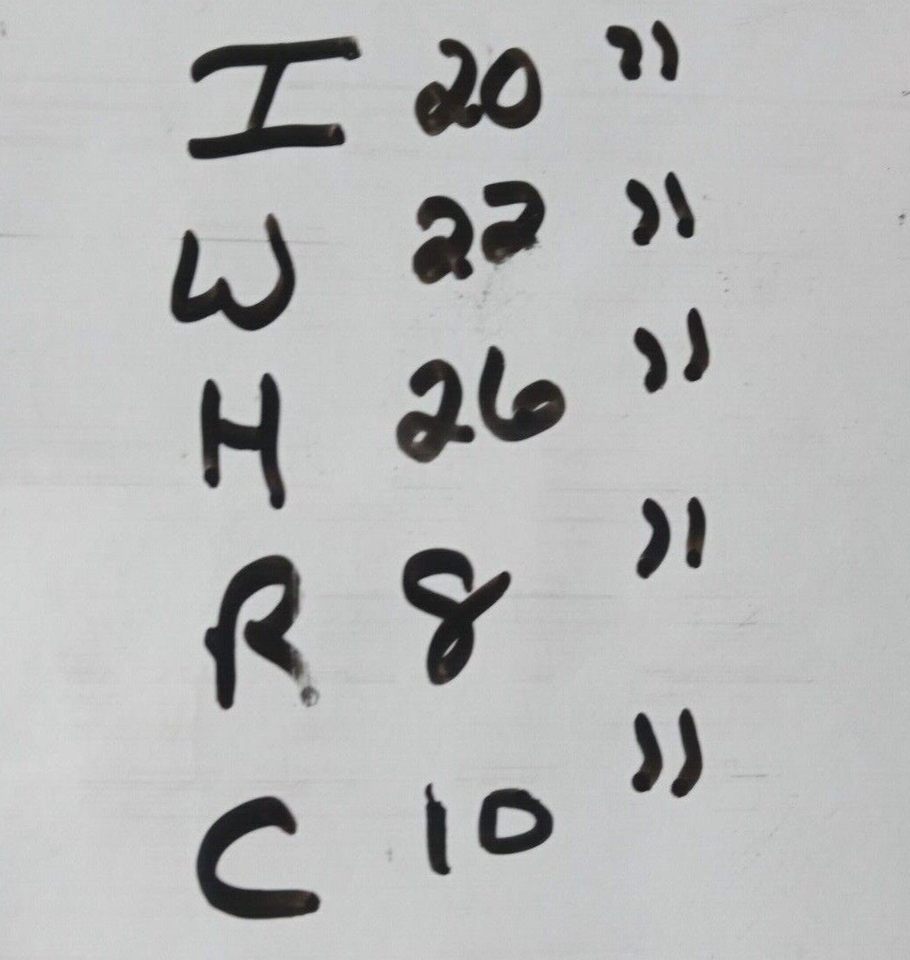 I 20 "
W 22 "
H 26 "
R 8 "
C 10 "